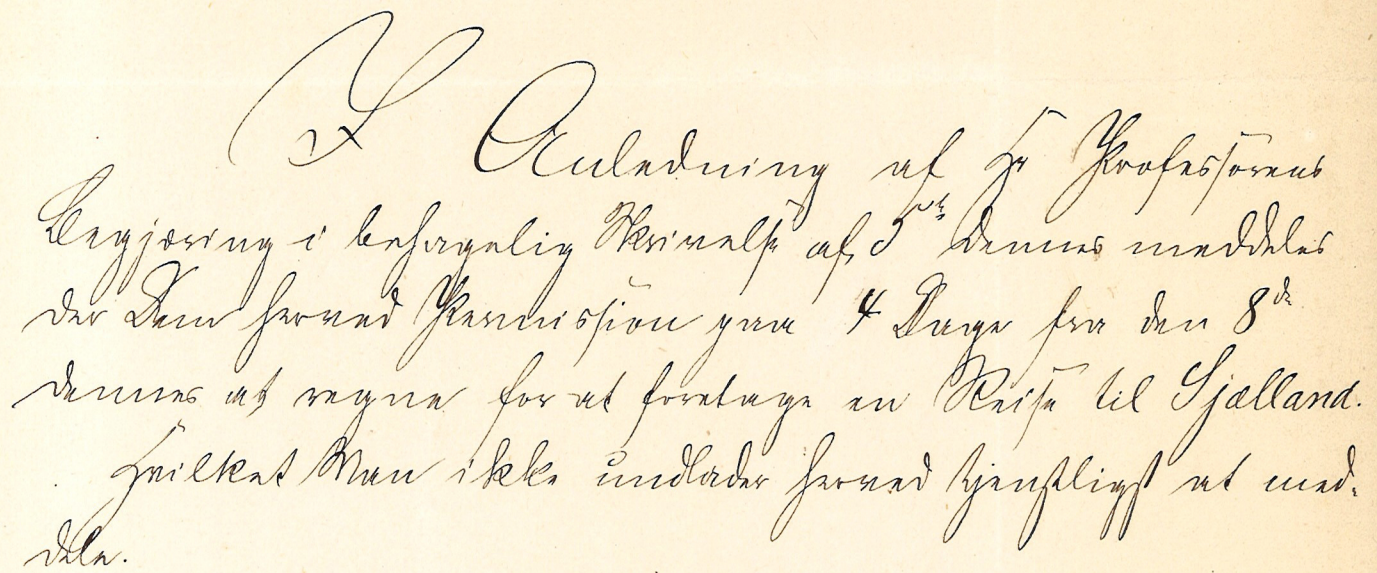 I Anledning af Hr Professorens
Begjæring i behagelig Skrivelse af 5te dennes meddeles
der Dem herved Permission paa 4 Dage fra den 8de
dennes at regne for at foretage en Reise til Sjælland.
Hvilket Man ikke undlader herved tjenstligst at med-
dele.